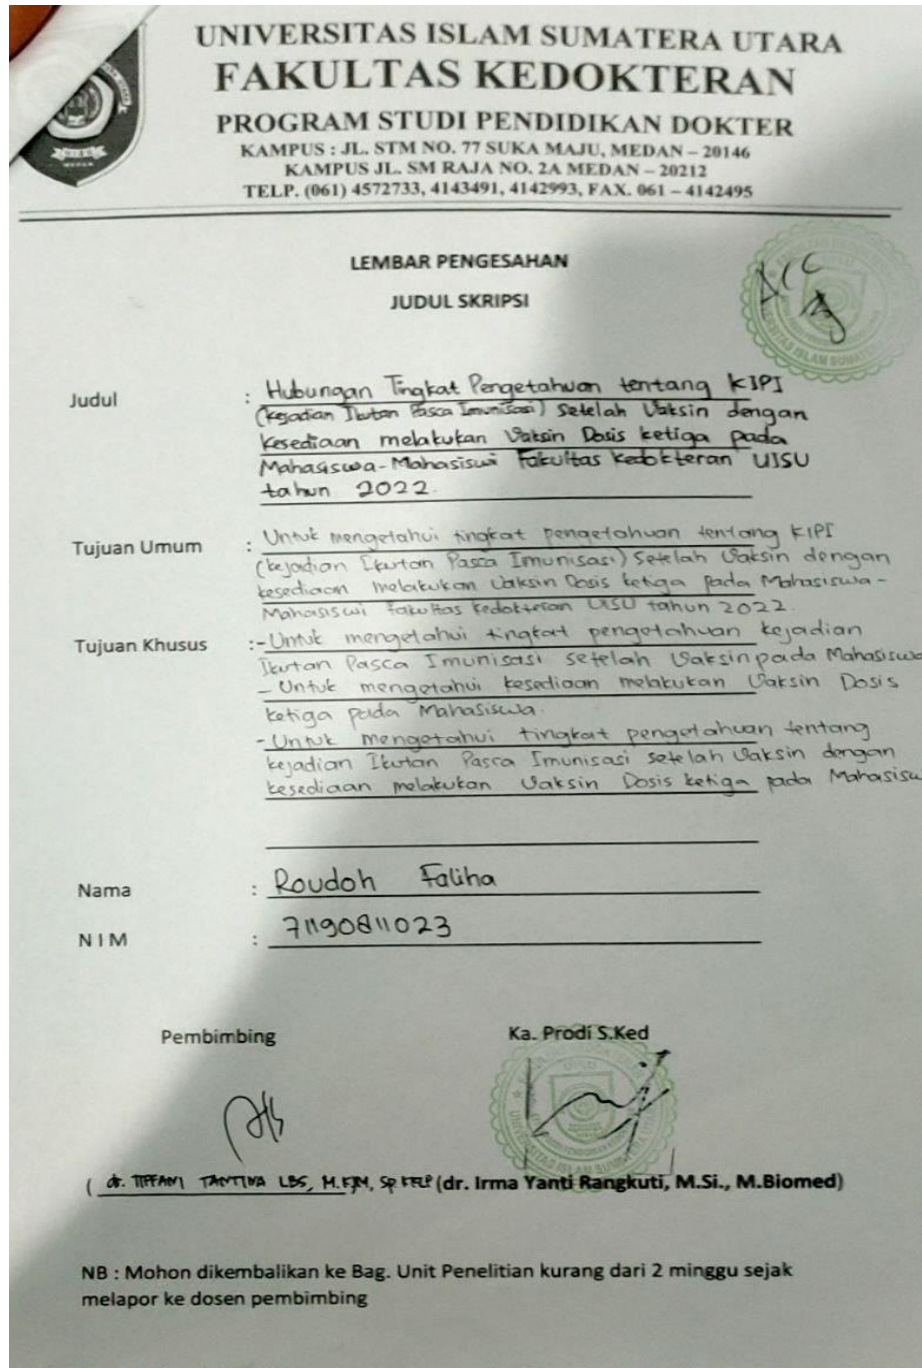 UNIVERSITAS ISLAM SUMATERA UTARA
FAKULTAS KEDOKTERAN
PROGRAM STUDI PENDIDIKAN DOKTER
KAMPUS : JL. STM NO. 77 SUKA MAJU, MEDAN – 20146
KAMPUS JL. SM RAJA NO. 2A MEDAN – 20212
TELP. (061) 4572733, 4143491, 4142993, FAX. 061 – 4142495
LEMBAR PENGESAHAN
JUDUL SKRIPSI
ACC
Judul : Hubungan Tingkat Pengetahuan tentang KIPI
(Kejadian Ikutan Pasca Imunisasi) Setelah Vaksin dengan
Kesediaan melakukan Vaksin Dosis ketiga pada
Mahasiswa-Mahasiswi Fakultas Kedokteran UISU
tahun 2022.
Tujuan Umum : Untuk mengetahui tingkat pengetahuan tentang KIPI
(kejadian Ikutan Pasca Imunisasi) Setelah Vaksin dengan
kesediaan melakukan Vaksin Dosis ketiga pada Mahasiswa-
Mahasiswi Fakultas Kedokteran UISU tahun 2022.
Tujuan Khusus :- Untuk mengetahui tingkat pengetahuan kejadian
Ikutan Pasca Imunisasi setelah Vaksin pada Mahasiswa
- Untuk mengetahui kesediaan melakukan Vaksin Dosis
ketiga pada Mahasiswa.
- Untuk mengetahui tingkat pengetahuan tentang
kejadian Ikutan Pasca Imunisasi setelah Vaksin dengan
kesediaan melakukan Vaksin Dosis ketiga pada Mahasisw
Nama : Roudoh Faliha
NIM : 71190811023
Pembimbing Ka. Prodi S.Ked
( dr. TIFFANI TANTINA LBS, M.KM, Sp KKLP (dr. Irma Yanti Rangkuti, M.Si., M.Biomed)
NB : Mohon dikembalikan ke Bag. Unit Penelitian kurang dari 2 minggu sejak
melapor ke dosen pembimbing